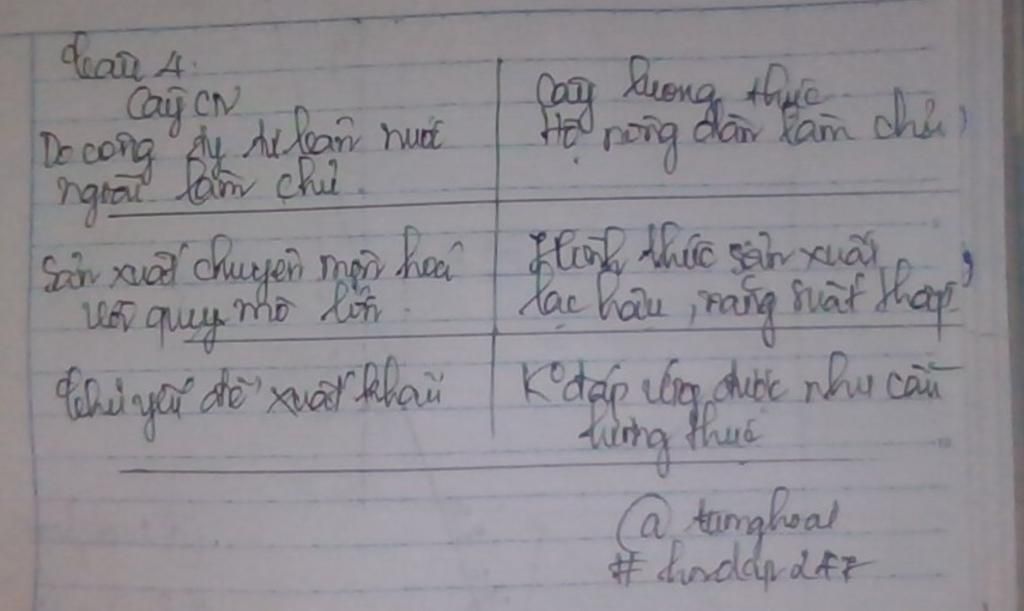 Câu 4.
Cây CN
Do công ty tư bản nước
ngoài làm chủ.
Sản xuất chuyên môn hoá
với quy mô lớn.
Chủ yếu để xuất khẩu
Cây lương thực
Hộ nông dân làm chủ,
Hình thức sản xuất
lạc hậu, năng suất thấp
K° đáp ứng được nhu cầu
lương thực
@ tunghoal
# hoidap247